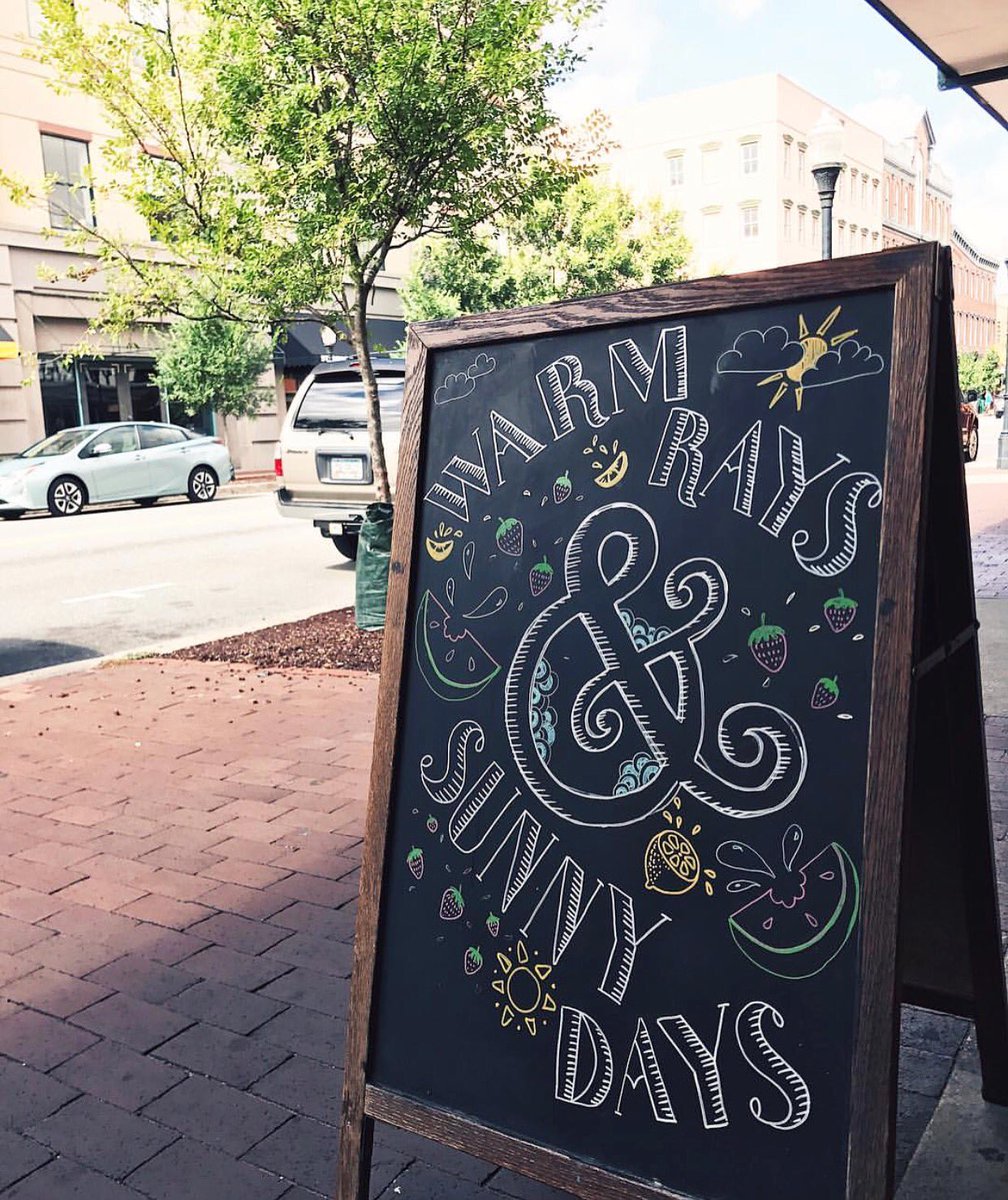 WARM
RAYS
&
SUNNY
DAYS